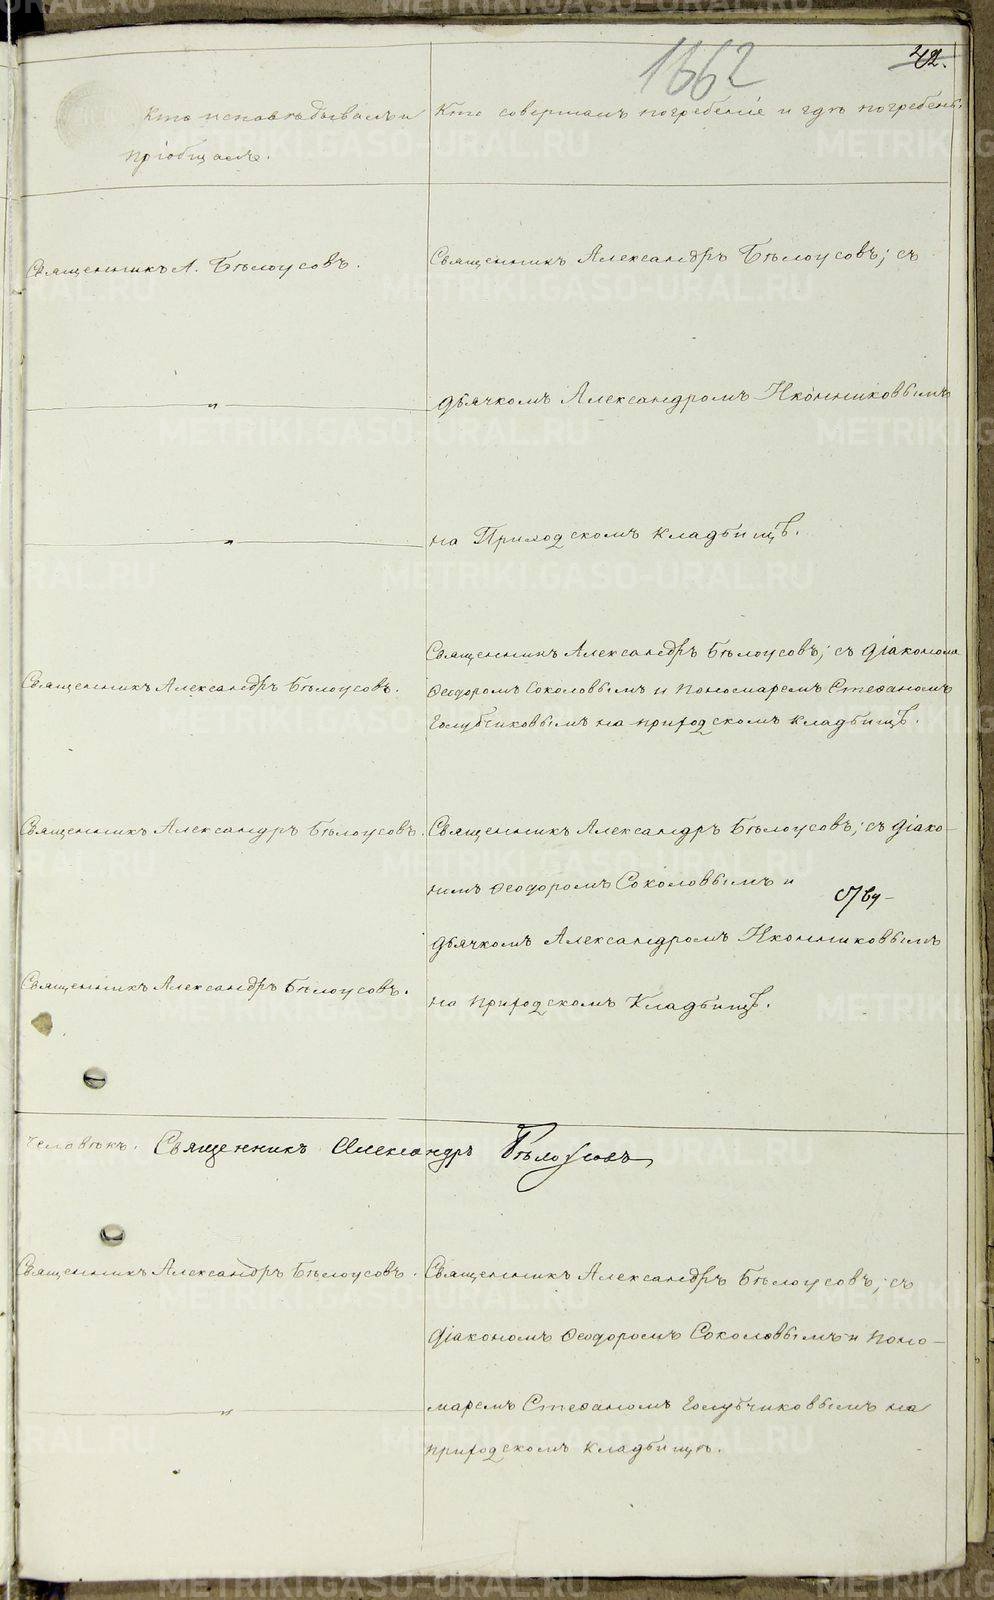 1662
42.
Кто исповѣдывалъ и
пріобщалъ.
Кто совершалъ погребеніе и гдѣ погребены
Священникъ А. Бѣлоусовъ.
Священникъ Александръ Бѣлоусовъ; съ
"
дьячкомъ Александромъ Иконниковымъ
"
на Приходскомъ кладбищѣ.
Священникъ Александръ Бѣлоусовъ.
Священникъ Александръ Бѣлоусовъ; съ діакономъ
Ѳеодоромъ Соколовымъ и пономаремъ Стефаномъ
Голубчиковымъ на приходскомъ кладбищѣ.
Священникъ Александръ Бѣлоусовъ.
Священникъ Александръ Бѣлоусовъ; съ діако-
номъ Ѳеодоромъ Соколовымъ и
дьячкомъ Александромъ Иконниковымъ
Священникъ Александръ Бѣлоусовъ.
на приходскомъ Кладбищѣ.
человѣкъ. Священникъ Александръ Бѣлоусовъ
Священникъ Александръ Бѣлоусовъ.
Священникъ Александръ Бѣлоусовъ; съ
діакономъ Ѳеодоромъ Соколовымъ и поно-
"
маремъ Стефаномъ Голубчиковымъ на
приходскомъ кладбищѣ.
METRIKI.GASO-URAL.RU